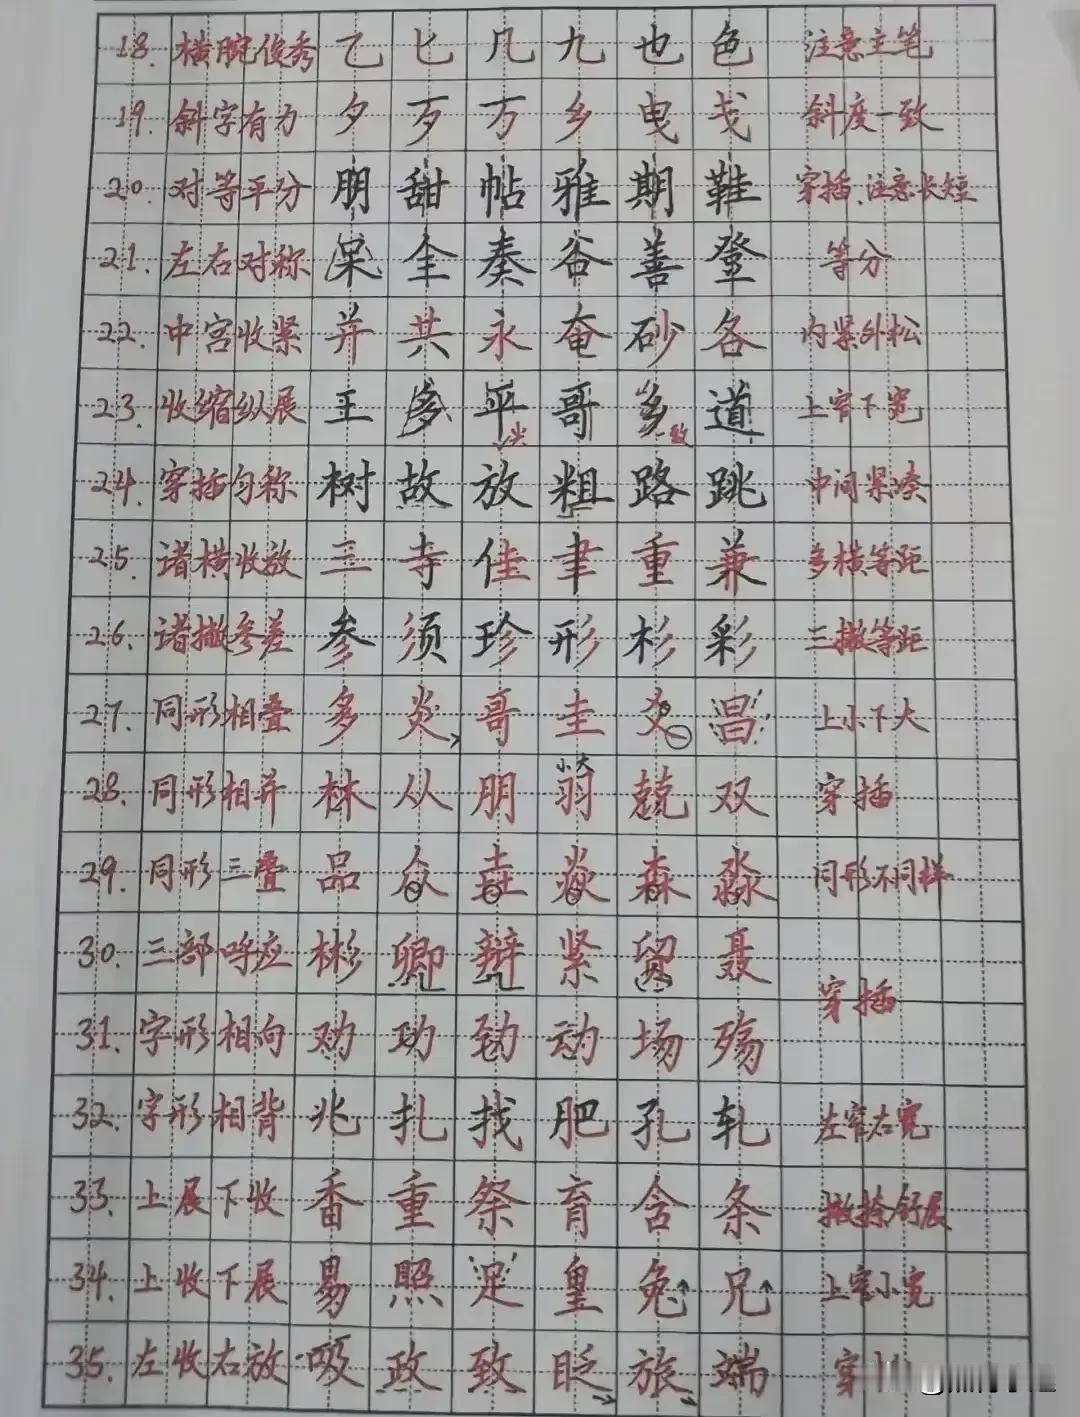 18. 横腕俊秀 乙 匕 凡 九 也 色 注意主笔
19. 斜字有为 夕 歹 万 乡 曳 戋 斜度一致
20. 对等平分 朋 甜 帖 雅 期 鞋 穿插、注意长短
21. 左右对称 呆 圭 奏 谷 善 登 等分
22. 中宫收紧 并 共 永 奄 砂 各 内紧外松
23. 收缩纵展 王 多 平 哥 多 道 上窄下宽
尖 一致
24. 穿插匀称 树 故 放 粗 路 跳 中间紧凑
25. 诸横收放 三 寺 佳 聿 重 兼 多横等距
26. 诸撇参差 参 须 珍 形 杉 彩 三撇等距
27. 同形相叠 多 炎 哥 圭 爻 昌 上小下大
小大
28. 同形相并 林 从 朋 羽 兢 双 穿插
29. 同形三叠 品 众 垚 焱 森 淼 同形不同样
30. 三部呼应 彬 卿 辩 紧 留 聂
穿插
31. 字形相向 劝 功 劲 动 场 殇
32. 字形相背 兆 扎 找 肥 孔 轧 左窄右宽
33. 上展下收 番 重 祭 育 含 条 撇捺舒展
34. 上收下展 易 照 足 皇 兔 兄 上窄小宽
35. 左收右放 吸 政 致 眨 旅 端 穿